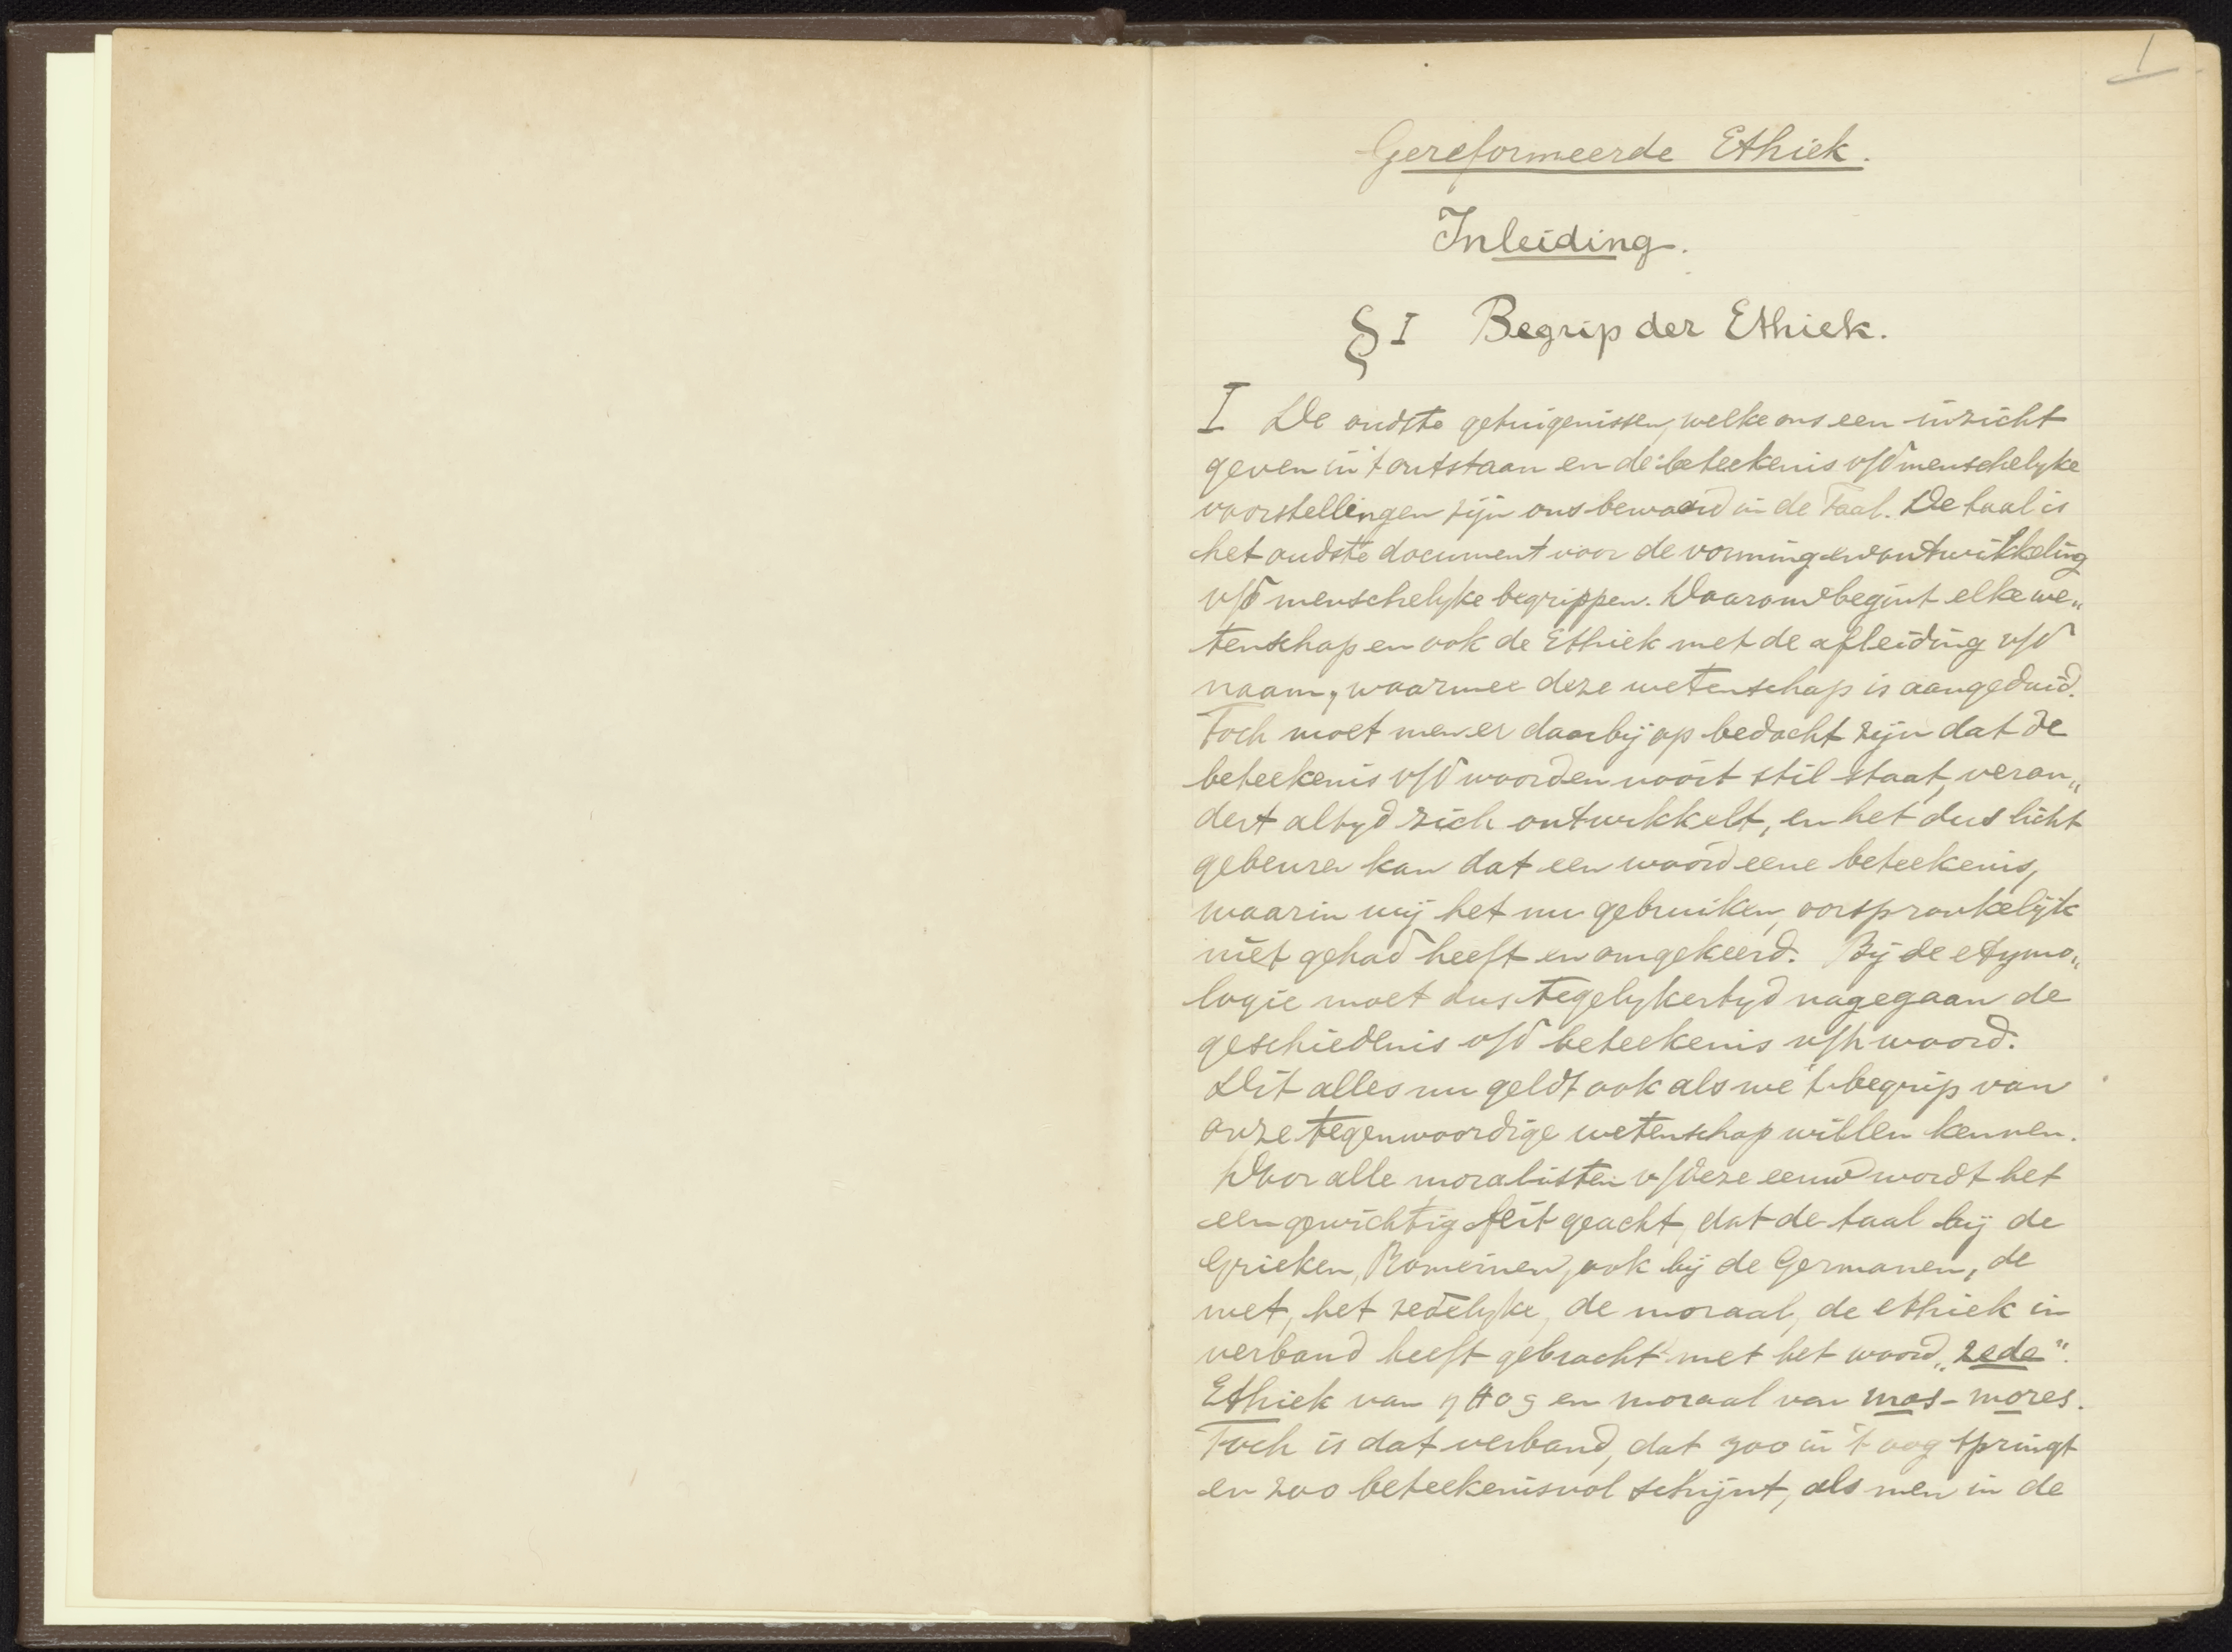 1
Gereformeerde Ethiek.
Inleiding.
§ I Begrip der Ethiek.
I De oudste getuigenissen, welke ons een inzicht
geven in 't ontstaan en de beteekenis v/d menschelyke
voorstellingen zijn ons bewaard in de Taal. De taal is
het oudste document voor de vorming en ontwikkeling
v/d menschelyke begrippen. Daarom begint elke we„
tenschap en ook de Ethiek met de afleiding v/d
naam, waarmee deze wetenschap is aangeduid.
Toch moet men er daarbij op bedacht zijn dat de
beteekenis v/d woorden nooit stil staat, veran„
dert altyd zich ontwikkelt, en het dus licht
gebeuren kan dat een woord eene beteekenis,
waarin wij het nu gebruiken, oorspronkelijk
niet gehad heeft en omgekeerd. Bij de etymo„
logie moet dus tegelykertyd nagegaan de
geschiedenis v/d beteekenis v/h woord.
Dit alles nu geldt ook als we 't begrip van
onze tegenwoordige wetenschap willen kennen.
Door alle moralisten v/deze eeuw wordt het
een gewichtig feit geacht, dat de taal bij de
Grieken, Romeinen, ook bij de Germanen, de
wet, het zedelyke, de moraal, de ethiek in
verband heeft gebracht met het woord „zede".
Ethiek van ηθος en moraal van mos - mores.
Toch is dat verband, dat zoo in 't oog springt
en zoo beteekenisvol schijnt, als men in de